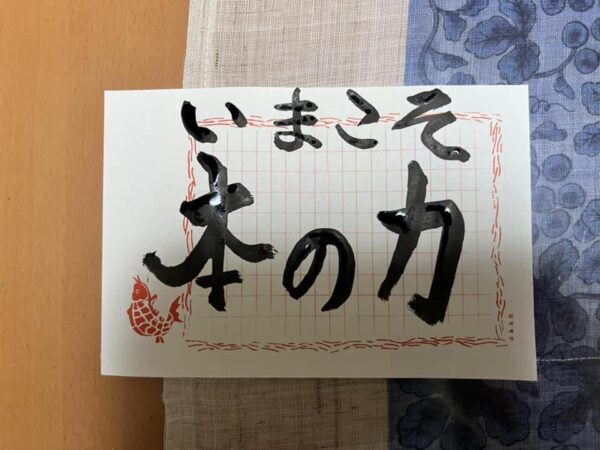 いまこそ
本の力